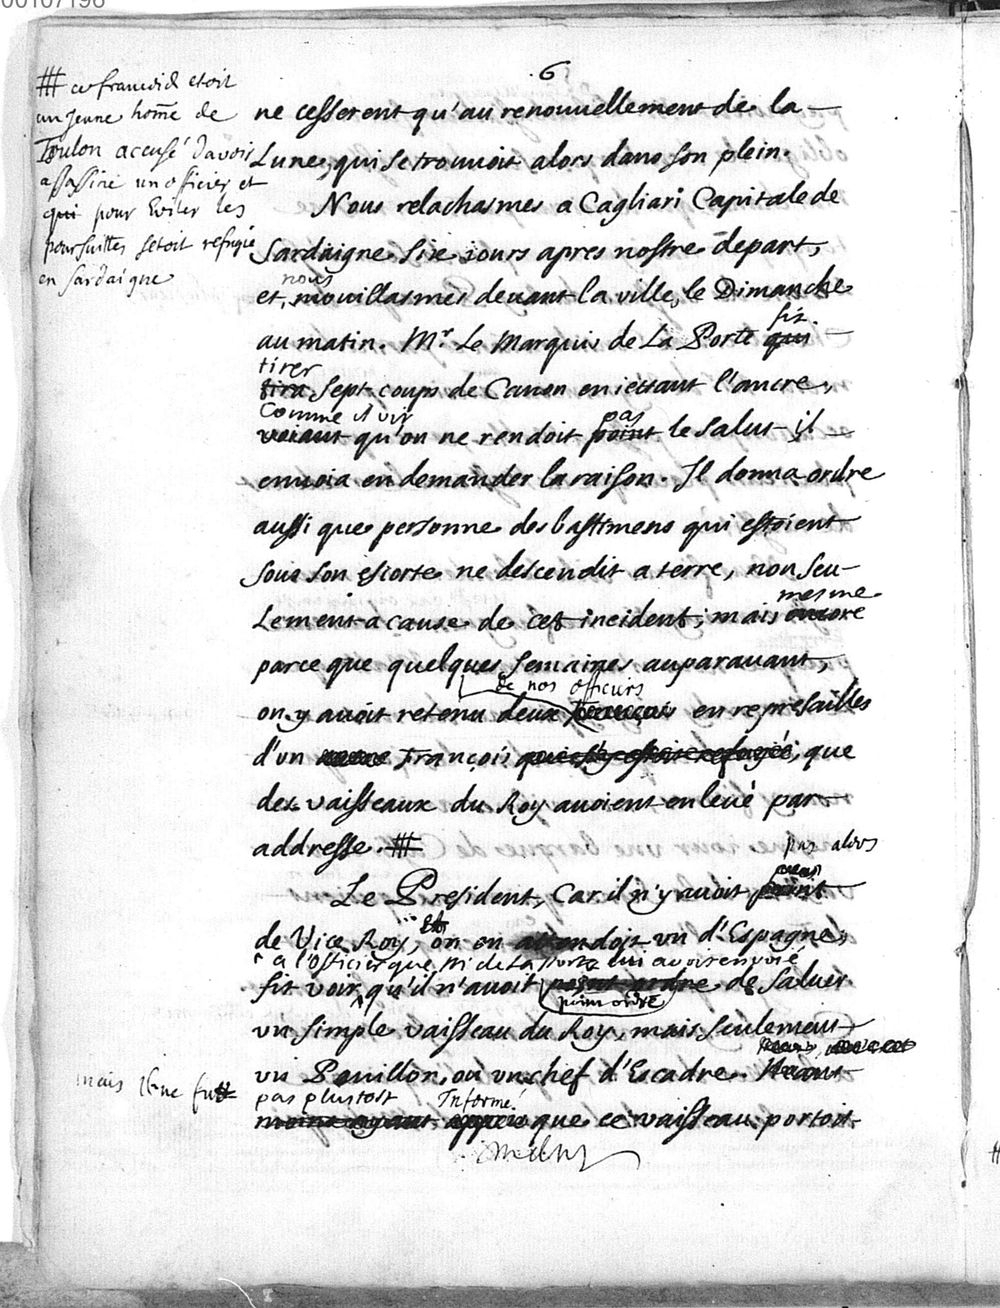 00107196
6
# ce francois etoit
un jeune home de
Toulon accusé davoir
assassiné un officier et
qui pour Eviter les
poursuittes setoit refugié
en sardaigne
ne cesserent qu'au renouuellement de la
Lune, qui se trouuoit alors dans son plein.
Nous relachasmes a Cagliari Capitale de
Sardaigne six iours apres nostre depart,
nous
et, mouillasmes deuant la ville, le Dimanche
fit
au matin. Mr. Le Marquis de La Porte qui
tirer
tira sept coups de Canon en iettant l'ancre,
Comme il vit pas
voiant qu'on ne rendoit point le salut il
enuoia en demander la raison. Il donna ordre
aussi que personne des bastimens qui estoient
sous son escorte ne descendit a terre, non seu-
mesme
Lement a cause de cet incident; mais encore
parce que quelques semaines auparauant,
de nos officiers
on y auoit retenu deux François en represailles
d'un François qui s'y estoit refugié, que
des vaisseaux du Roy auoient enleué par
addresse. #
pas alors
Le President, Car il n'y auoit point
de Vice Roy, on en attendoit vn d'Espagne,
a l'officier que Mr de La Porte lui avoit envoié
fit voir qu'il n'auoit point ordre de saluer
point ordre
vn simple vaisseau du Roy, mais seulement
vn Pauillon, ou vn chef d'Escadre.
mais il ne fut
pas plustost Informé
moins ayant appris que ce vaisseau portoit